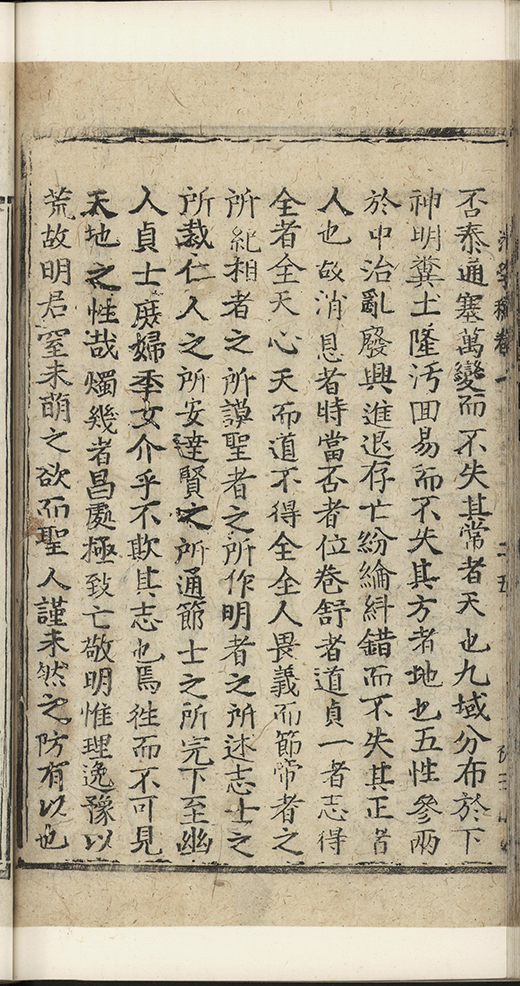 否泰通塞萬變而不失其常者天也九域分布於下
神明糞土隆汚回易而不失其方者地也五性參兩
於中治亂廢興進退存亡紛綸糾錯而不失其正者
人也故消息者時當否者位卷舒者道貞一者志得
全者全天心天而道不得全全人畏義而節常者之
所紀相者之所謨聖者之所作明者之所述志士之
所裁仁人之所安達賢之所通節士之所完下至幽
人貞士庶婦季女介乎不欺其志也焉往而不可見
天地之性哉燭幾者昌處極致亡敬明惟理逸豫以
荒故明君窒未萌之欲而聖人謹未然之防有以也